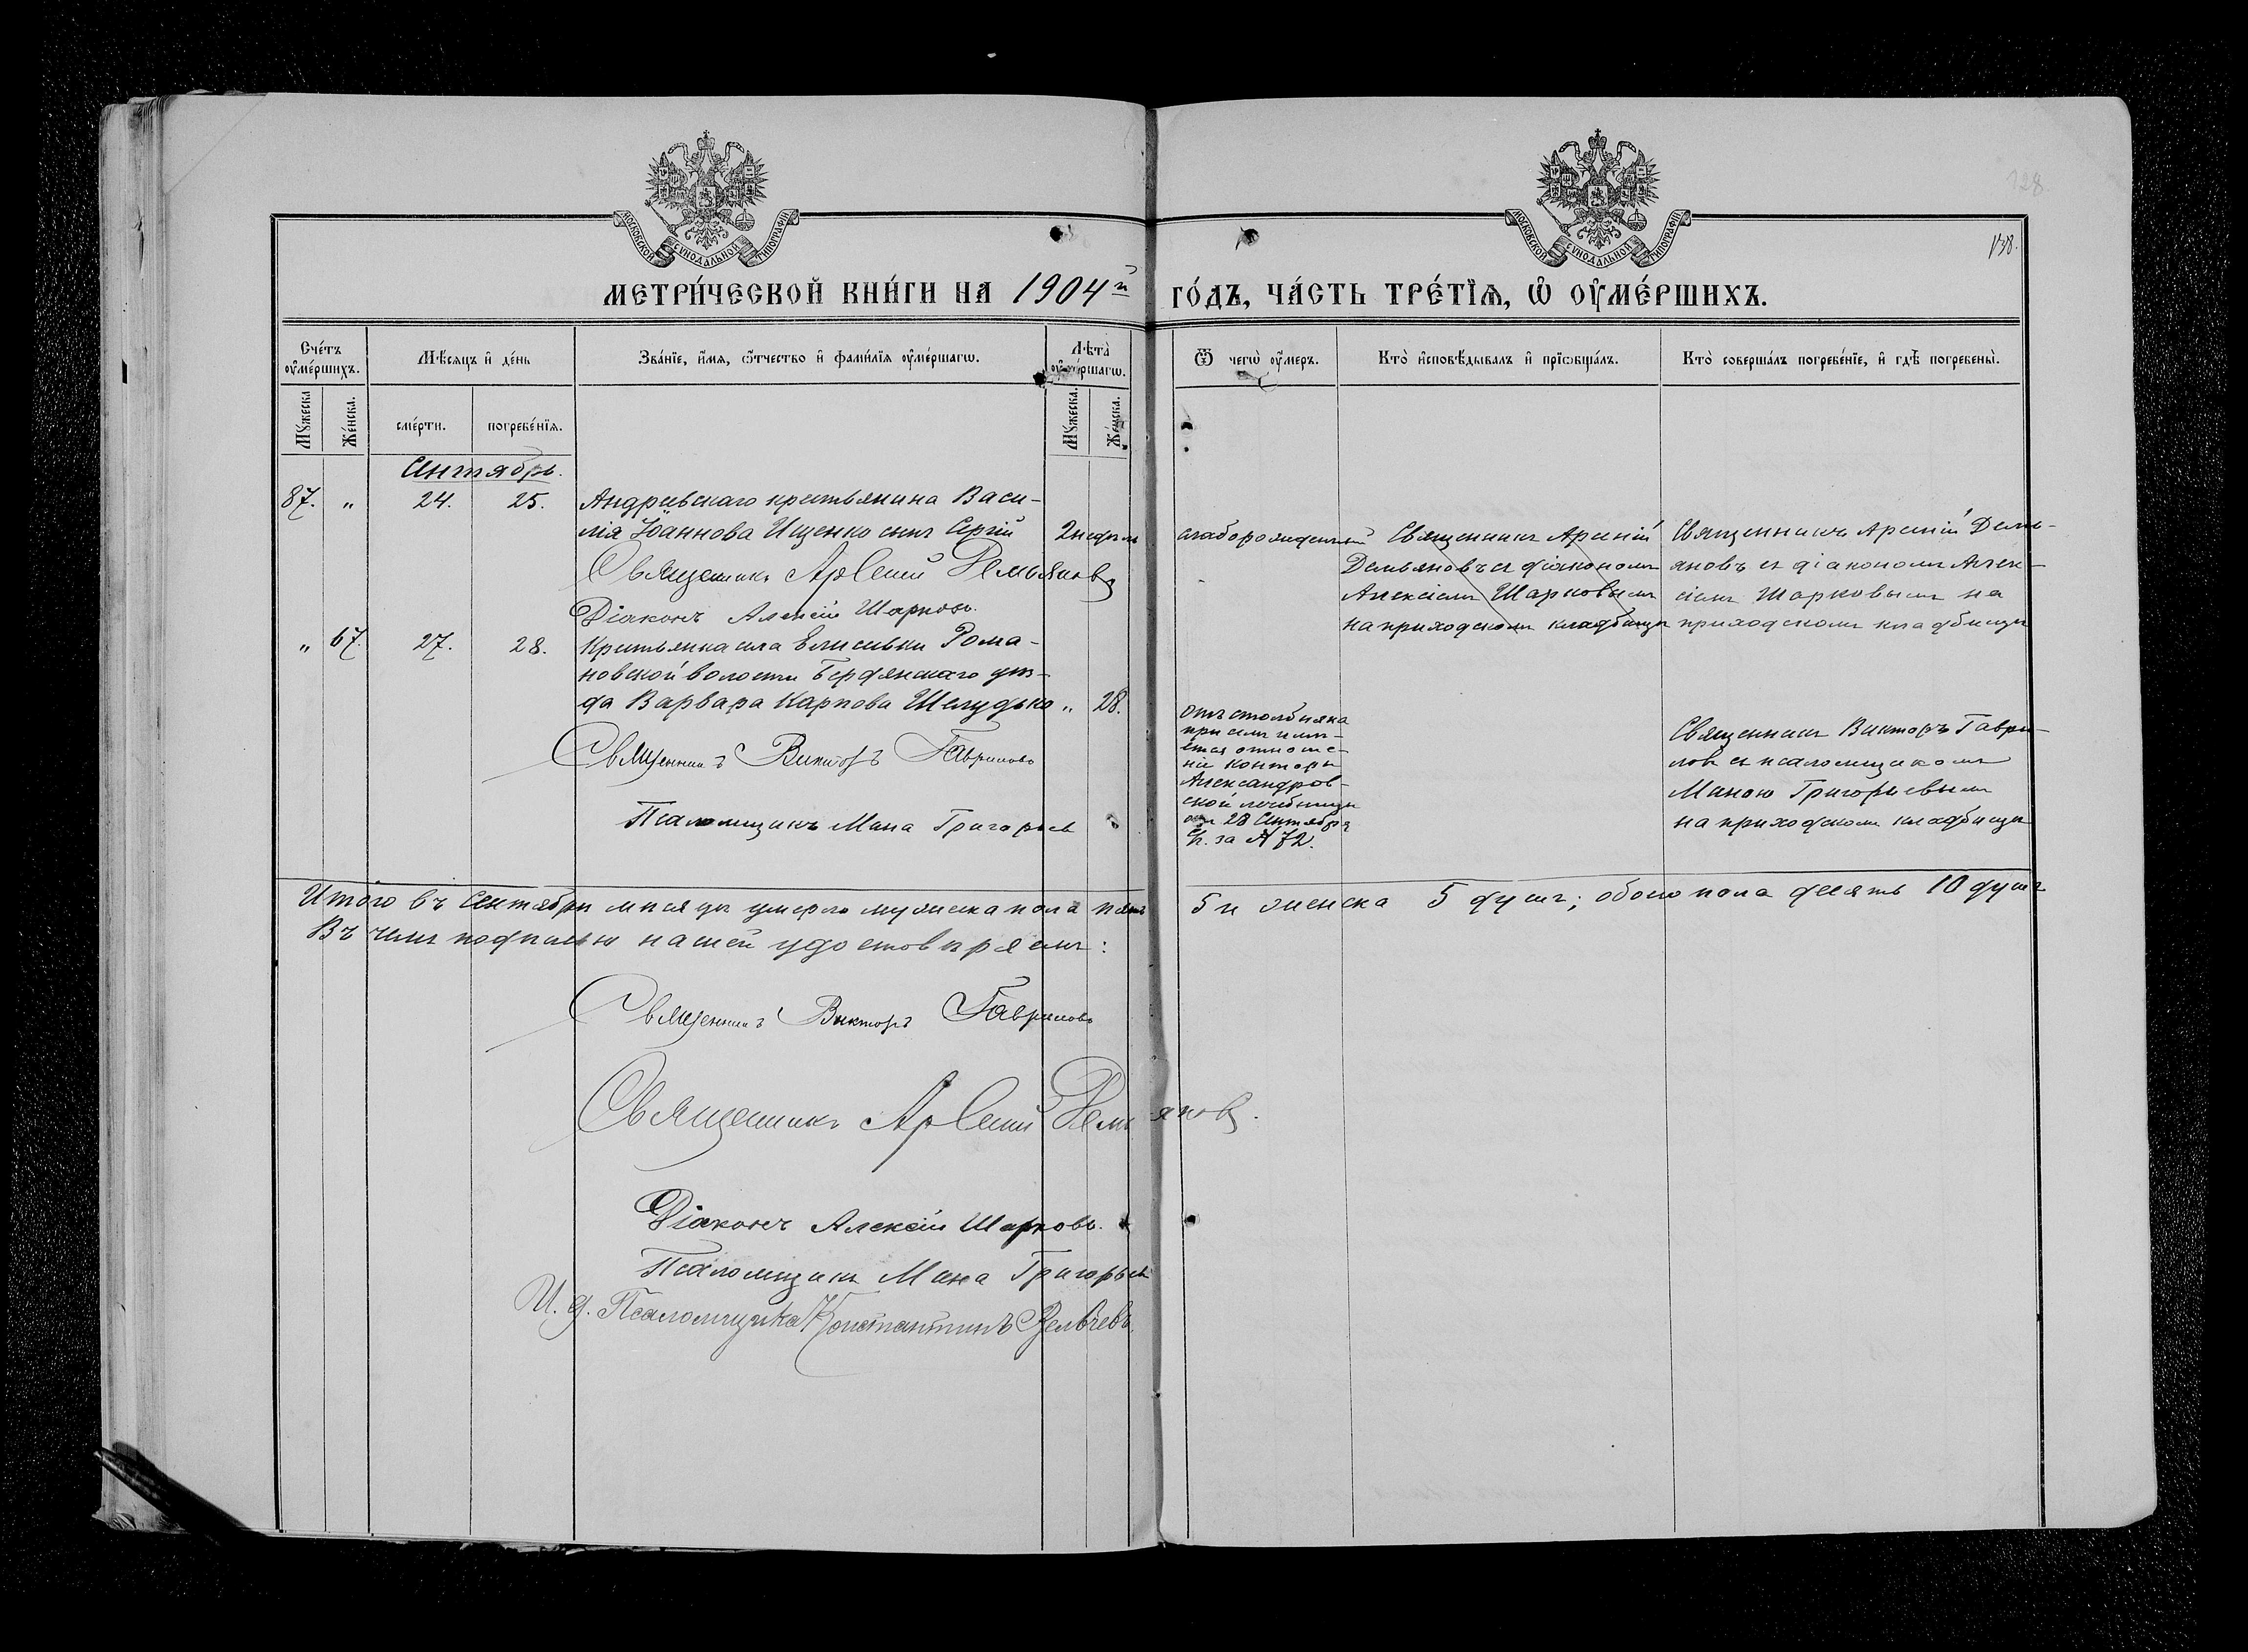 МОСКОВСКОЙ СѴНОДАЛЬНОЙ ТИПОГРАФІИ
МОСКОВСКОЙ СѴНОДАЛЬНОЙ ТИПОГРАФІИ
128
138.
МЕТРИ́ЧЕСКОЙ КНИ́ГИ НА 1904й ГО́ДЪ, ЧА́СТЬ ТРЕ́ТІѦ, Ѡ҆ ОУ҆МЕ́РШИХЪ.
Сче́тъ оу҆ме́ршихъ.
Мѣ́сяцъ и҆ де́нь
Зва́нїе, и҆́мя, ѻ҆́тчество и҆ фами́лїя оу҆ме́ршагѡ.
Лѣ́та оу҆ме́ршагѡ.
Ѿ чегѡ̀ оу҆́меръ.
Кто̀ и҆сповѣ́дывалъ и҆ прїѡбща́лъ.
Кто̀ соверша́лъ погребе́нїе, и҆ гдѣ̀ погребены̀.
Мꙋ́жеска
Же́нска.
сме́рти.
погребе́нїѧ.
Мꙋ́жеска.
Же́нска.
Сентябрь.
87. " 24. 25. Андреевскаго крестьянина Васи-
лія Іоаннова Ищенко сынъ Сергій 2 недѣли
Священникъ Арсеній Демьяновъ
Діаконъ Алексій Шарковъ.
слаборожденный
Священникъ Арсеній
Демьяновъ съ діакономъ
Алексіемъ Шарковымъ
на приходскомъ кладбищѣ
Священникъ Арсеній Демь-
яновъ съ діакономъ Алек-
сіемъ Шарковымъ на
приходскомъ кладбищѣ
" 67. 27. 28. Крестьянка села Елисѣевки Рома-
новской волости Бердянскаго уѣз-
да Варвара Карпова Шелудько " 28.
Священникъ Викторъ Гавриловъ
Псаломщикъ Мина Григорьев
отъ столбняка
при семъ имѣ-
ется отноше-
ніе конторы
Александров-
ской лечебницы
отъ 28 Сентября
за № 72.
Священникъ Викторъ Гаври-
ловъ съ псаломщикомъ
Миною Григорьевымъ
на приходскомъ кладбищѣ
Итого въ Сентябрѣ мѣсяцѣ умерло мужеска пола пять 5 и женска 5 душъ; обоего пола десять 10 душъ
Въ чемъ подписью нашей удостовѣряемъ:
Священникъ Викторъ Гавриловъ
Священникъ Арсеній Демьяновъ.
Діаконъ Алексій Шарковъ.
Псаломщикъ Мина Григорьев
И. д. Псаломщика Константинъ